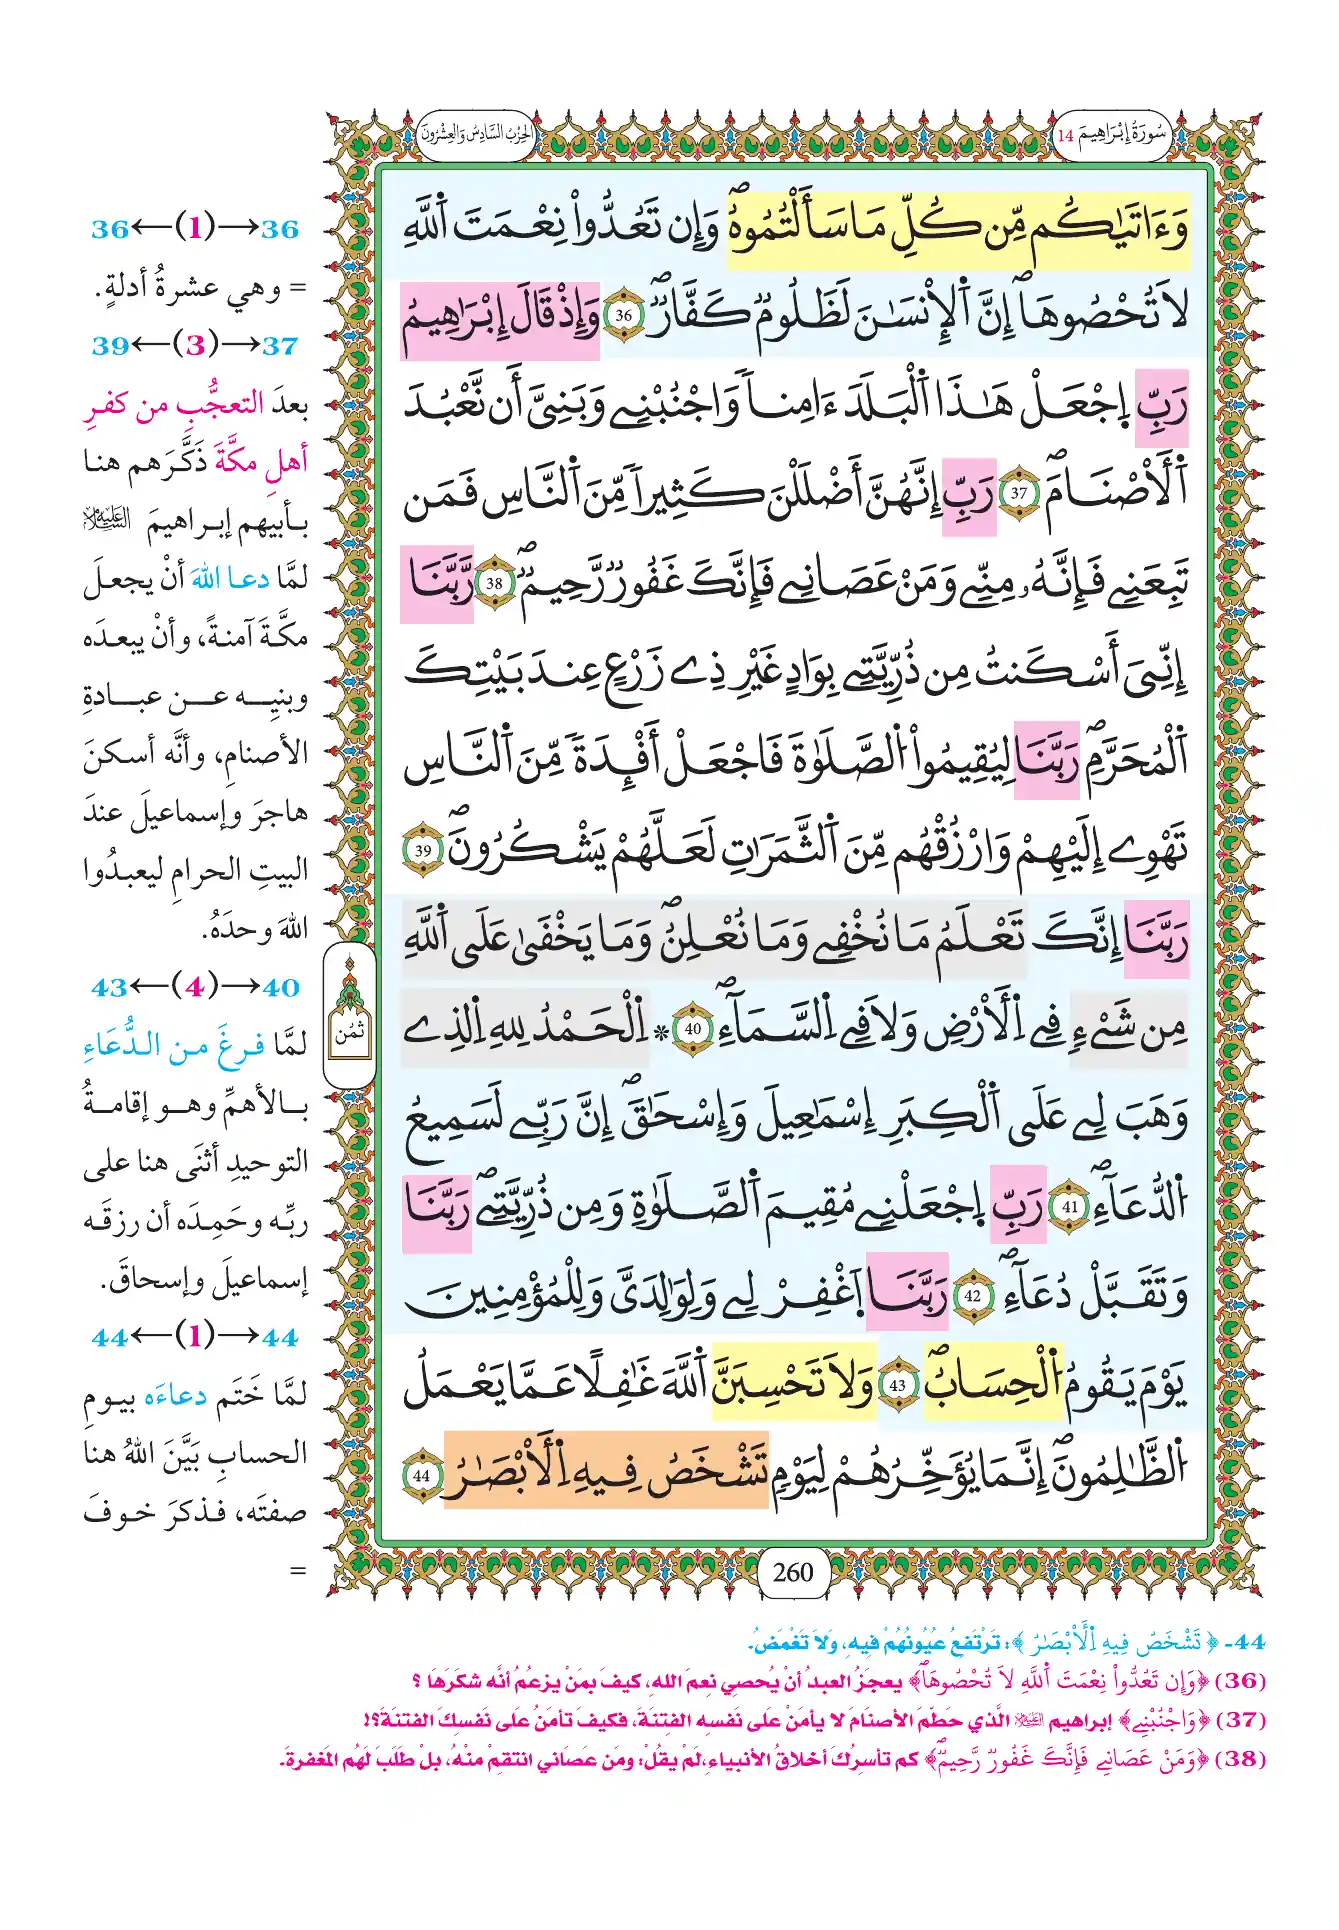 سُورَةُ إِبْرَاهِيمَ 14
الحِزْبُ السَّادِسُ وَالعِشْرُونَ
وَءَاتَيٰكُم مِّن كُلِّ مَا سَأَلْتُمُوهُۖ وَإِن تَعُدُّواْ نِعْمَتَ اَ۬للَّهِ
لَا تُحْصُوهَاۖ إِنَّ اَ۬لْإِنْسَٰنَ لَظَلُومٞ كَفَّارٞۖ 36 وَإِذْ قَالَ إِبْرَٰهِيمُ
رَبِّ اِ۪جْعَلْ هَٰذَا اَ۬لْبَلَدَ ءَامِناٗ وَاجْنُبْنِے وَبَنِيَّ أَن نَّعْبُدَ
اَ۬لْأَصْنَامَۖ 37 رَبِّ إِنَّهُنَّ أَضْلَلْنَ كَثِيراٗ مِّنَ اَ۬لنَّاسِ فَمَن
تَبِعَنِے فَإِنَّهُۥ مِنِّے وَمَنْ عَصَانِے فَإِنَّكَ غَفُورٞ رَّحِيمٞۖ 38 رَّبَّنَا
إِنِّيَ أَسْكَنتُ مِن ذُرِّيَّتِے بِوَادٍ غَيْرِ ذِے زَرْعٍ عِندَ بَيْتِكَ
اَ۬لْمُحَرَّمِۖ رَبَّنَا لِيُقِيمُواْ اُ۬لصَّلَوٰةَ فَاجْعَلْ أَفْـِٕدَةٗ مِّنَ اَ۬لنَّاسِ
تَهْوِے إِلَيْهِمْ وَارْزُقْهُم مِّنَ اَ۬لثَّمَرَٰتِ لَعَلَّهُمْ يَشْكُرُونَۖ 39
رَبَّنَا إِنَّكَ تَعْلَمُ مَا نُخْفِے وَمَا نُعْلِنُۖ وَمَا يَخْفَىٰ عَلَى اَ۬للَّهِ
مِن شَےْءٖ فِے اِ۬لْأَرْضِ وَلَا فِے اِ۬لسَّمَآءِۖ 40 * اِ۬لْحَمْدُ لِلهِ اِ۬لذِے
وَهَبَ لِے عَلَى اَ۬لْكِبَرِ إِسْمَٰعِيلَ وَإِسْحَٰقَۖ إِنَّ رَبِّے لَسَمِيعُ
اُ۬لدُّعَآءِۖ 41 رَبِّ اِ۪جْعَلْنِے مُقِيمَ اَ۬لصَّلَوٰةِ وَمِن ذُرِّيَّتِےۖ رَبَّنَا
وَتَقَبَّلْ دُعَآءِۖ 42 رَبَّنَا اَ۪غْفِرْ لِے وَلِوَٰلِدَيَّ وَلِلْمُؤْمِنِينَ
يَوْمَ يَقُومُ اُ۬لْحِسَابُۖ 43 وَلَا تَحْسِبَنَّ اَ۬للَّهَ غَٰفِلًا عَمَّا يَعْمَلُ
اُ۬لظَّٰلِمُونَۖ إِنَّمَا يُؤَخِّرُهُمْ لِيَوْمٖ تَشْخَصُ فِيهِ اِ۬لْأَبْصَٰرُ 44
ثُمُن
260
36←(1)→36
= وهي عشرةُ أدلةٍ.
39←(3)→37
بعدَ التعجُّبِ من كفرِ
أهلِ مكَّةَ ذَكَّرَهم هنا
بأبيهم إبراهيمَ عَلَيْهِ السَّلَام
لمَّا دعا اللهَ أنْ يجعلَ
مكَّةَ آمنةً، وأنْ يبعدَه
وبنيِه عن عبادةِ
الأصنامِ، وأنَّه أسكنَ
هاجرَ وإسماعيلَ عندَ
البيتِ الحرامِ ليعبدُوا
اللهَ وحدَهُ.
43←(4)→40
لمَّا فرغَ من الدُّعَاءِ
بالأهمِّ وهو إقامةُ
التوحيدِ أثنَى هنا على
ربِّه وحَمِدَه أن رزقَه
إسماعيلَ وإسحاقَ.
44←(1)→44
لمَّا خَتَم دعاءَه بيومِ
الحسابِ بَيَّنَ اللهُ هنا
صفتَه، فذكرَ خوفَ
=
44- ﴿تَشْخَصُ فِيهِ اِ۬لْأَبْصَٰرُ﴾: تَرْتَفِعُ عُيُونُهُمْ فِيهِ، وَلَا تَغْمَضُ.
(36) ﴿وَإِن تَعُدُّواْ نِعْمَتَ اَ۬للَّهِ لَا تُحْصُوهَاۖ﴾ يعجَزُ العبدُ أنْ يُحصِي نِعمَ اللهِ، كيفَ بمَنْ يزعمُ أنَّه شكَرَهَا ؟
(37) ﴿وَاجْنُبْنِے﴾ إبراهيم عَلَيْهِ السَّلَام الَّذي حَطَّمَ الأصنَامَ لا يأمَنْ على نَفسِه الفِتنَةَ، فكيفَ تأمَنُ على نَفسِكَ الفتنَةَ؟!
(38) ﴿وَمَنْ عَصَانِے فَإِنَّكَ غَفُورٞ رَّحِيمٞۖ﴾ كم تأسِرُكَ أخلاقُ الأنبياءِ، لَمْ يقُلْ: ومَن عصَاني انتقِمْ منْهُ، بلْ طلَبَ لَهُم المَغفرةَ.